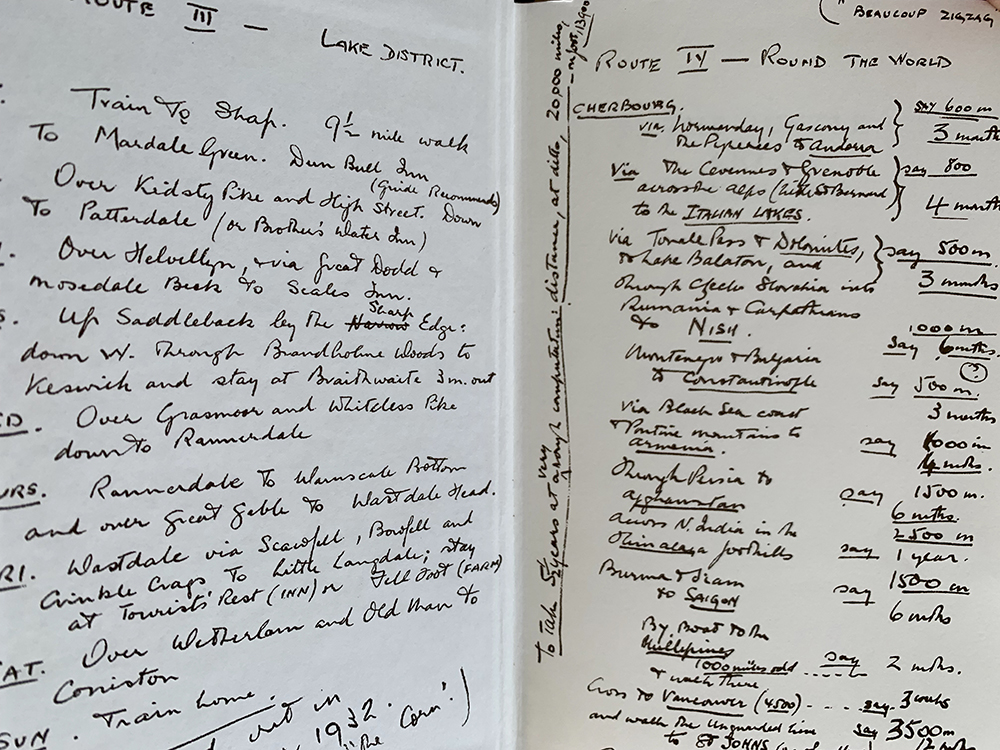 ROUTE III — LAKE DISTRICT.
Train to Shap. 9½ mile walk
To Mardale Green. Dun Bull Inn
(Guide Recommends)
Over Kidsty Pike and High Street. Down
To Patterdale (or Brother's Water Inn)
Over Helvellyn, & via Great Dodd &
Mosedale Beck to Scales Inn.
S. Up Saddleback by the Narrow Sharp Edge:
down W. Through Brandholme Woods to
Keswick and stay at Braithwaite 3m. out
ED. Over Grasmoor and Whiteless Pike
down to Rannerdale
URS. Rannerdale To Warnscale Bottom
and over Great Gable to Wastdale Head.
RI. Wastdale via Scawfell, Bowfell and
Crinkle Crags To Little Langdale; stay
at Tourists' Rest (INN) or Fell Foot (FARM)
AT. Over Wetherlam and Old Man to
Coniston
SUN. Train home.
out in
1932.
the Corn!)
To take 5½ years at very rough computation: distance, at ditto, 20,000 miles,
— on foot, 13900
(" BEAUCOUP ZIGZAG
ROUTE IV — ROUND THE WORLD
CHERBOURG.
via Normandy, Gascony and
the Pyrenees to Andorra
SAY 600 m
3 month
Via The Cevennes & Grenoble
across the Alps (Little St Bernard
to the ITALIAN LAKES.
say 800
4 month
via Tonale Pass & Dolomites,
to Lake Balaton, and
through Czecho Slovakia into
Rumania & Carpathians
to NISH.
say 500m.
3 months
1000 m
say 6 mths.
(?)
Montenegro & Bulgaria
to Constantinople
say 500 m.
3 months
via Black Sea coast
& Pontine mountains to
Armenia.
say 1000 m
4 mths.
Through Persia to
Afghanistan
say 1500 m.
6 mths.
Across N. India in the
Himalaya foothills
2500 m
say 1 year.
Burma & Siam
to SAIGON
say 1500 m
6 mths
By Boat to the
Phillipines
1000 miles odd
& walk there
say 2 mths.
Cross to Vancouver (4500) . . . . say 3 wks
and walk the Unguarded Line
to ST JOHNS
say 3500m